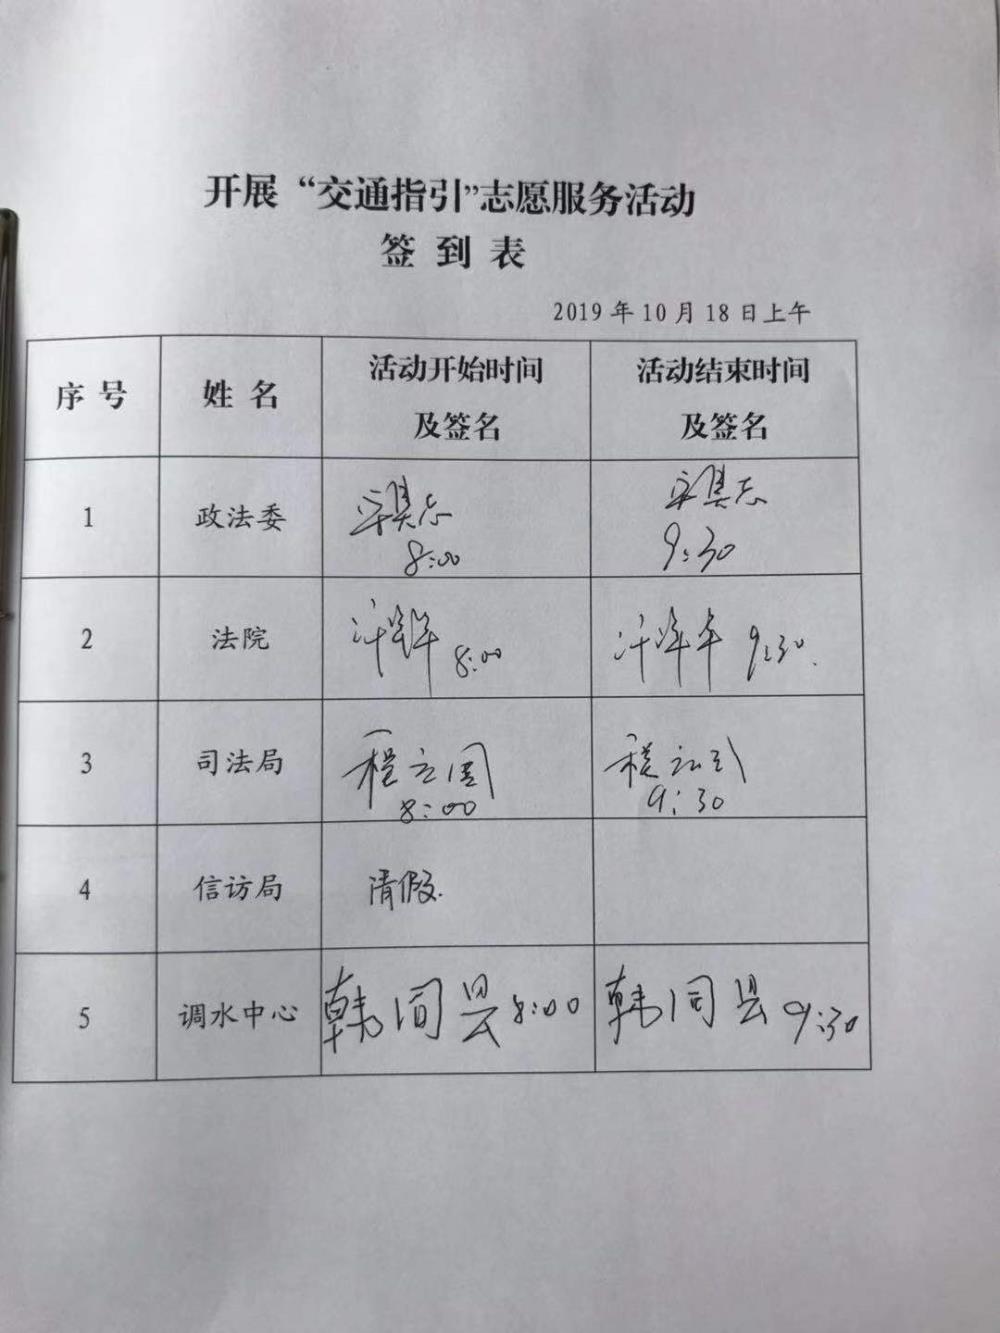 开展“交通指引”志愿服务活动
签到表
2019年10月18日上午
序号
姓名
活动开始时间
及签名
活动结束时间
及签名
1
政法委
8:00
9:30
2
法院
8:00
9:30.
3
司法局
程立国
8:00
9:30
4
信访局
请假.
5
调水中心
韩同昙 8:00
韩同昙 9:30